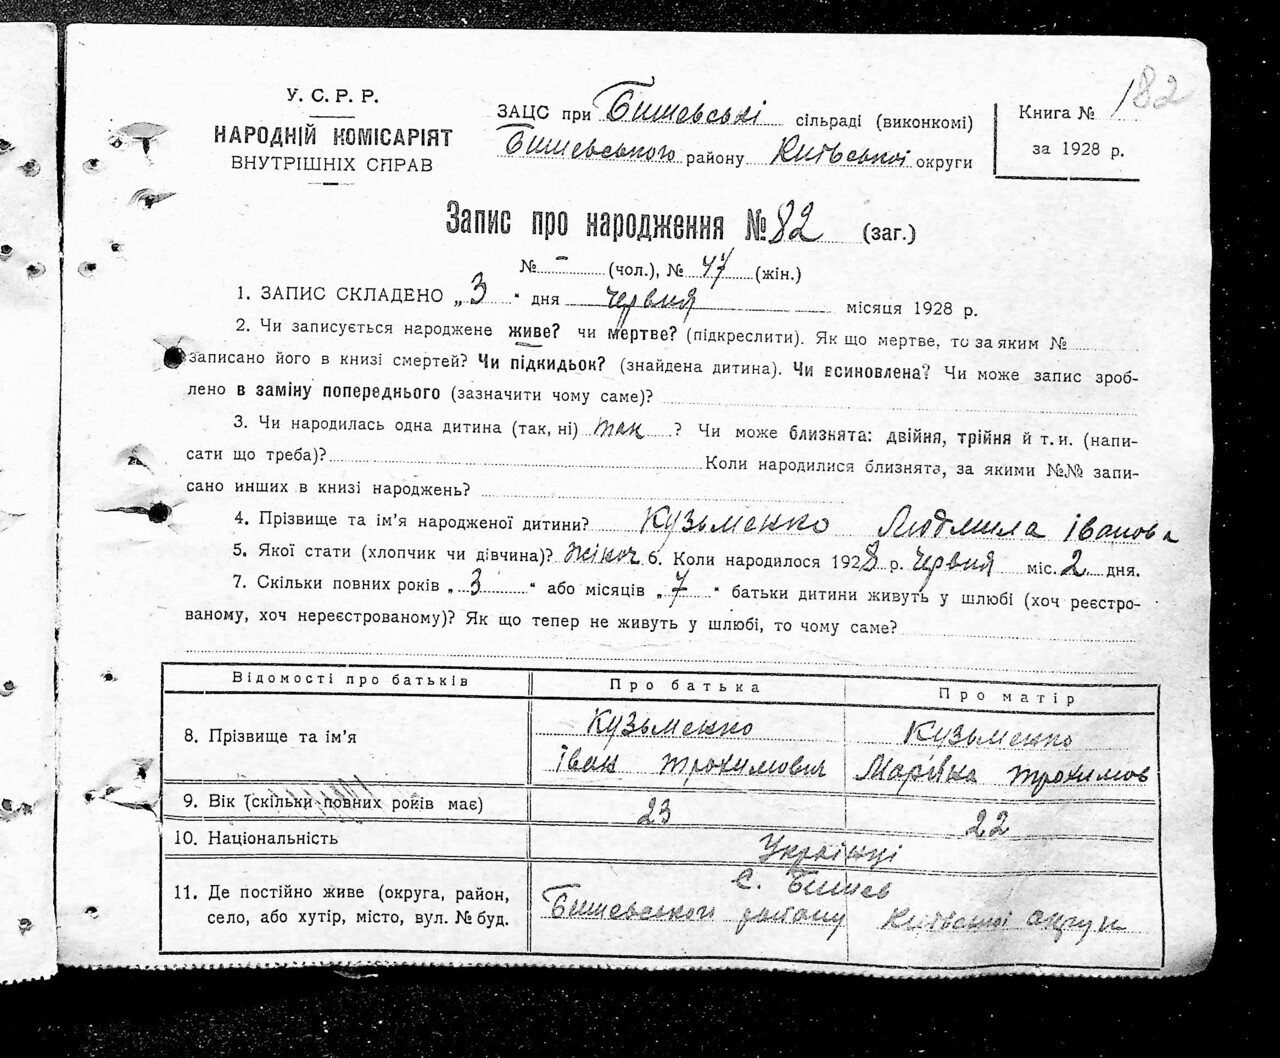 182
У. С. Р. Р.
НАРОДНІЙ КОМІСАРІЯТ
ВНУТРІШНІХ СПРАВ
ЗАЦС при Бишевські сільраді (виконкомі)
Бишевського району Київської округи
Книга №
за 1928 р.
Запис про народження № 82 (заг.)
№ - (чол.), № 47 (жін.)
1. ЗАПИС СКЛАДЕНО „ 3 “ дня червня місяця 1928 р.
2. Чи записується народжене живе? чи мертве? (підкреслити). Як що мертве, то за яким №
записано його в книзі смертей? Чи підкидьок? (знайдена дитина). Чи всиновлена? Чи може запис зроб-
лено в заміну попереднього (зазначити чому саме)?
3. Чи народилась одна дитина (так, ні) так ? Чи може близнята: двійня, трійня й т. и. (напи-
сати що треба)? Коли народилися близнята, за якими №№ запи-
сано инших в книзі народжень?
4. Прізвище та ім’я народженої дитини? Кузьменко Людмила Іванова
5. Якої стати (хлопчик чи дівчина)? жіноч 6. Коли народилося 1928 р. червня міс. 2 дня.
7. Скільки повних років „ 3 “ або місяців „ 7 “ батьки дитини живуть у шлюбі (хоч реєстро-
ваному, хоч нереєстрованому)? Як що тепер не живуть у шлюбі, то чому саме?
Відомості про батьків Про батька Про матір
8. Прізвище та ім’я Кузьменко Іван Трохимович Кузьменко Мар'яна Трохимов
9. Вік (скільки повних років має) 23 22
10. Національність Українці
11. Де постійно живе (округа, район, с. Бишев
село, або хутір, місто, вул. № буд. Бишевського району Київської округи